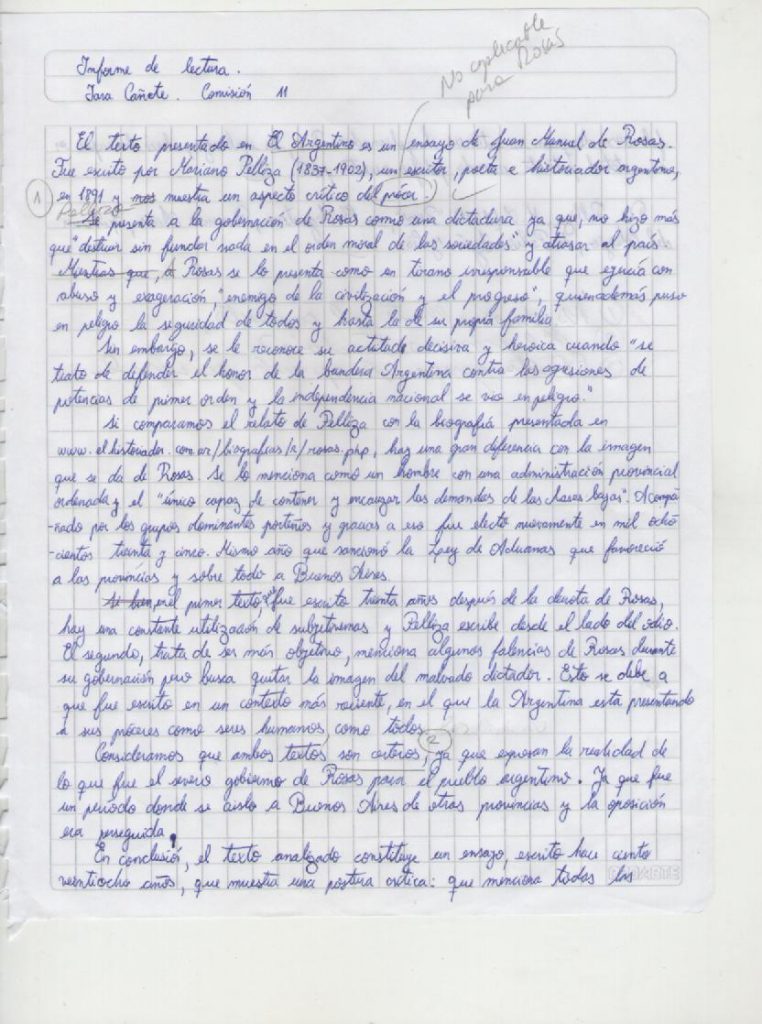 No aplicable
para Rosas
Informe de lectura.
Iara Cañete. Comisión 11
El texto presentado en El Argentino es un ensayo de Juan Manuel de Rosas.
Fue escrito por Mariano Pelliza (1837-1902), un escritor, poeta e historiador argentino,
1 en 1891 y nos muestra un aspecto crítico del prócer.
Pelliza
Se presenta a la gobernación de Rosas como una dictadura ya que, no hizo más
que "destruir sin fundar nada en el orden moral de las sociedades" y atrasar al país.
Mientras que, A Rosas se lo presenta como un tirano irresponsable que ejercía con
abuso y exageración, "enemigo de la civilización y el progreso", quien además puso
en peligro la seguridad de todos y hasta la de su propia familia.
Sin embargo, se le reconoce su actitud decisiva y heroica cuando "se
trato de defender el honor de la bandera Argentina contra las agresiones de
potencias de primer orden y la independencia nacional se vio en peligro."
Si comparamos el relato de Pelliza con la biografía presentada en
www.elhistoriador.com.ar/biografias/r/rosas.php, hay una gran diferencia con la imagen
que se da de Rosas. Se lo menciona como un hombre con una administración provincial
ordenada y el "único capaz de contener y encauzar las demandas de las clases bajas". Acompa-
-ñado por los grupos dominantes porteños y gracias a eso fue electo nuevamente en mil ocho
-cientos treinta y cinco. Mismo año que sancionó la Ley de Aduanas que favoreció
a las provincias y sobre todo a Buenos Aires.
Si bien, en el primer texto, que fue escrito treinta años después de la derrota de Rosas,
hay una constante utilización de subjetivemas y Pelliza escribe desde el lado del odio.
El segundo, trata de ser más objetivo, menciona algunas falencias de Rosas durante
su gobernación pero busca quitar la imagen del malvado dictador. Esto se debe a
que fue escrito en un contexto más reciente, en el que la Argentina esta presentando
a sus próceres como seres humanos como todos.
2
Consideramos que ambos textos son certeros, ya que exponen la realidad de
lo que fue el severo gobierno de Rosas para el pueblo argentino. Ya que fue
un período donde se aislo a Buenos Aires de otras provincias y la oposición
era perseguida.
En conclusión, el texto analizado constituye un ensayo, escrito hace ciento
veintiocho años, que muestra una postura crítica: que menciona todas las